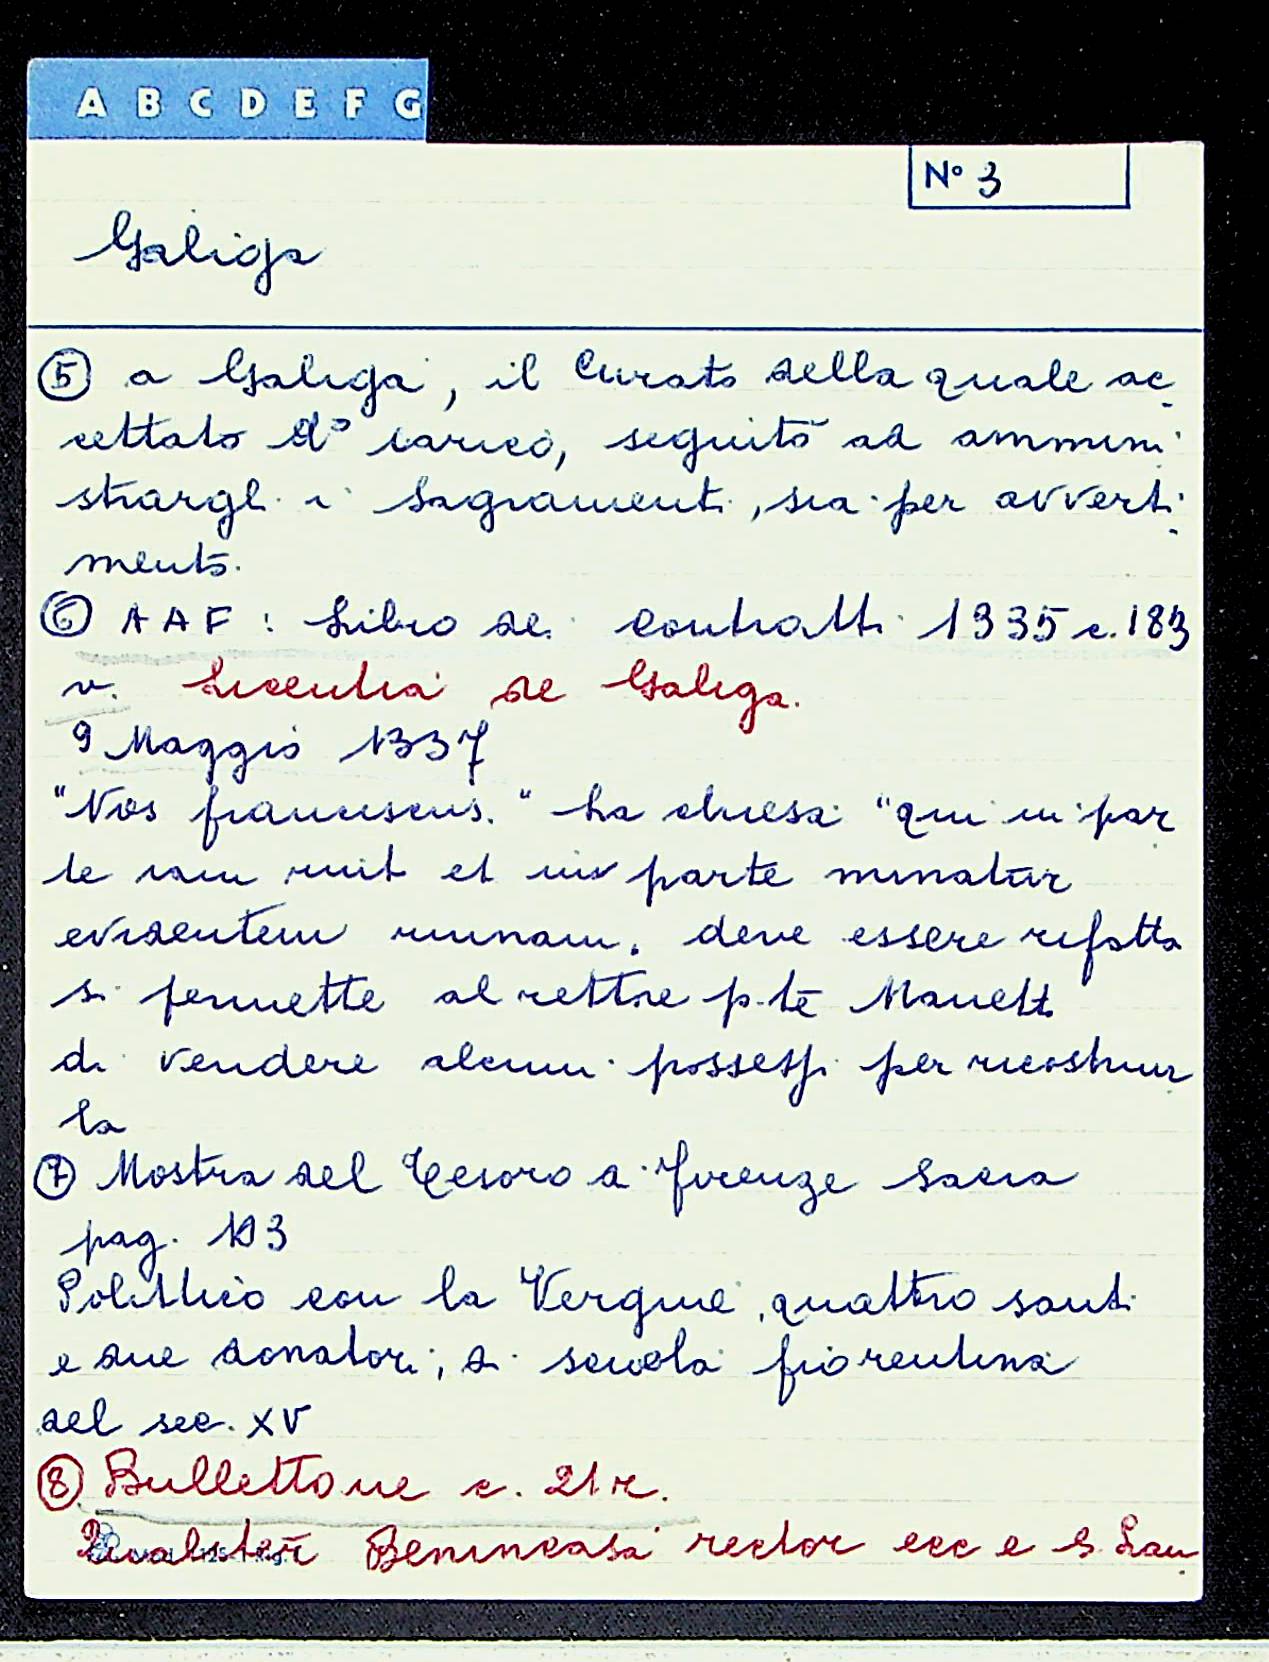 A B C D E F G
N° 3
Galiga
⑤ a Galiga, il Curato della quale ac
cettato d° carico, seguitò ad ammini
strargli i Sagramenti, sia per averti
mento.
⑥ AAF: Libro dei contratti 1335 c. 183
v. Licentia de Galiga.
9 Maggio 1337
"Nos franciscus." ha chiesa "qui in par
te iam ruit et in parte minatur
evidentem ruinam. deve essere rifatta
si permette al rettore p.te Manetti
di vendere alcuni possessi per ricostruir
la
⑦ Mostra del Tesoro a Firenze Sacra
pag. 103
Polittico con la Vergine, quattro santi
e due donatori, di scuola fiorentina
del sec. XV
⑧ Bullettone c. 21 r.
Benincasa rector ecc e S. Lau